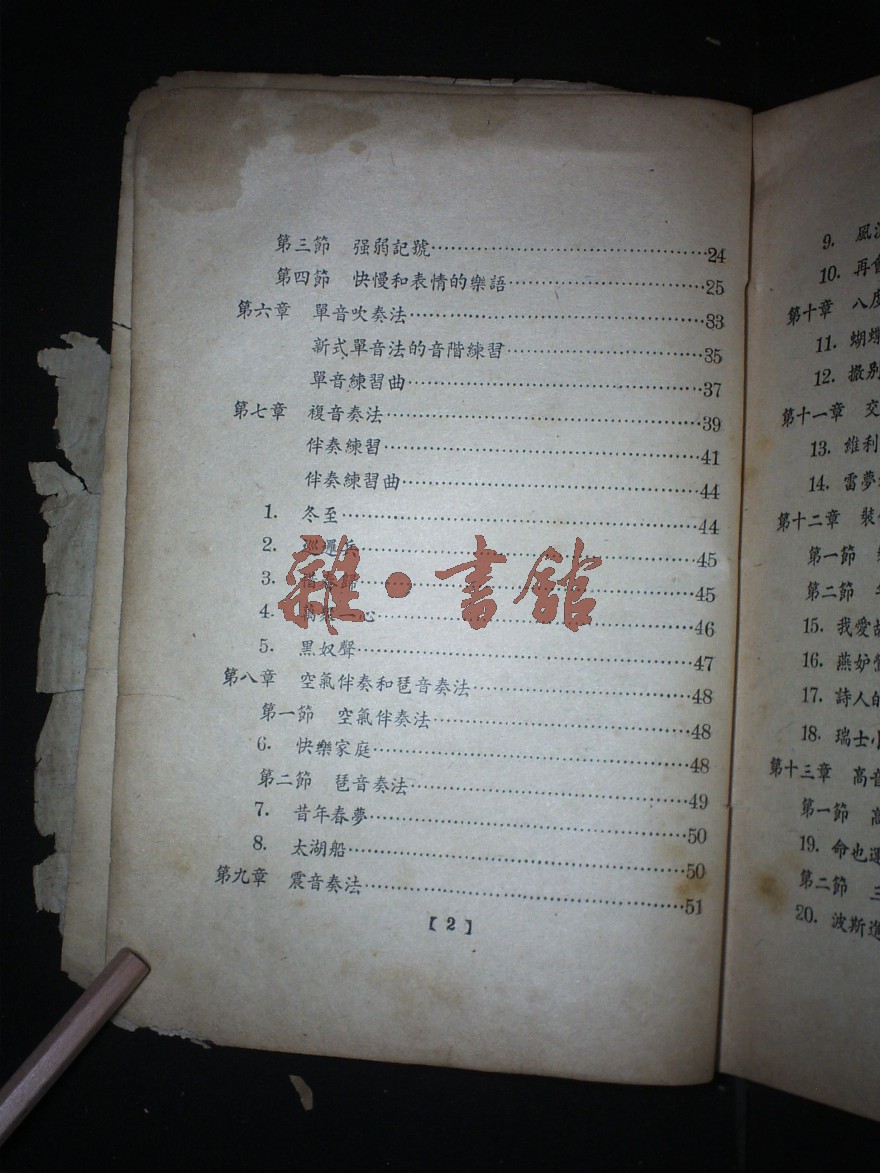 第三節 强弱記號……24
第四節 快慢和表情的樂語……25
第六章 單音吹奏法……33
新式單音法的音階練習……35
單音練習曲……37
第七章 複音奏法……39
伴奏練習……41
伴奏練習曲……44
1. 冬至……44
2. 巡邏兵……45
3. ……45
4. 一心……46
5. 黑奴聲……47
第八章 空氣伴奏和琶音奏法……48
第一節 空氣伴奏法……48
6. 快樂家庭……48
第二節 琶音奏法……49
7. 昔年春夢……50
8. 太湖船……50
第九章 震音奏法……51
【2】
雜·書館
9. 風
10. 再會
第十章 八度
11. 蝴蝶
12. 撒別
第十一章 交
13. 維利
14. 雷夢
第十二章 裝
第一節
第二節
15. 我愛故
16. 燕妒鶯
17. 詩人的
18. 瑞士小
第十三章 高音
第一節 高
19. 命也運
第二節 三
20. 波斯進